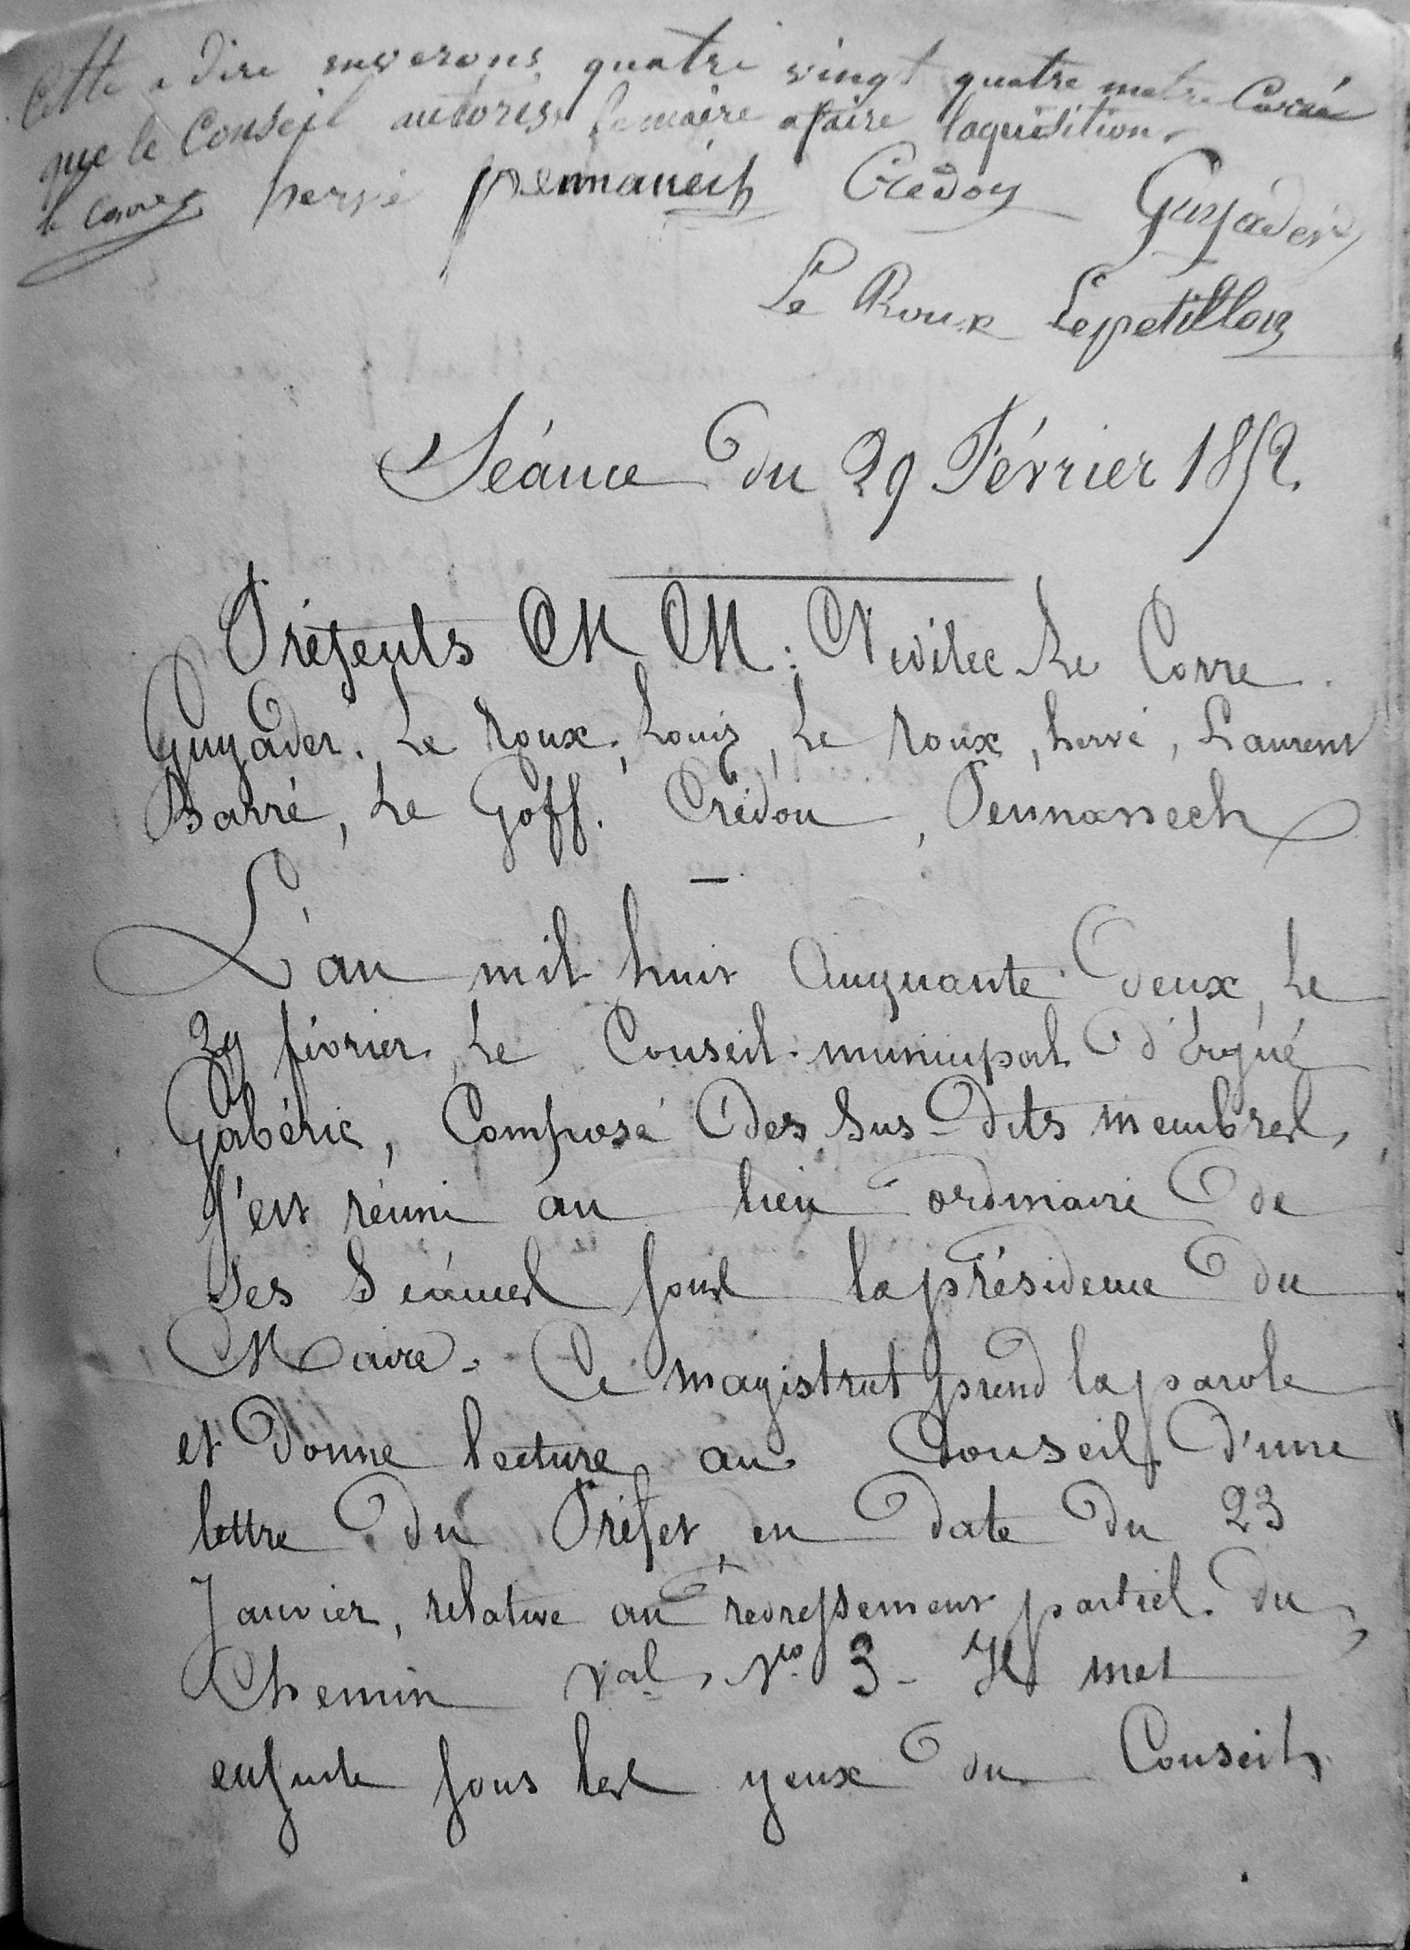 Cette a dire enverons quatre vingt quatre metre Carré
que le Conseil autorise lemaire afaire laquisition
le corre hervé pennanéch Crédou Guyader
Le Roux Lepetillon
Séance du 29 Février 1852.
Présents MM: Nédilec Le Corre.
Guyader. Le Roux, Louis, Le Roux, hervé, Laurent
Barré, Le Goff. Crédou, Pennanech
L'an mil huit Cinquante deux, le
29 février. Le Conseil municipal d'Ergué
Gabéric, Composé des sus-dits membres,
s'est réuni au lieu ordinaire de
ses Séances sous la présidence du
Maire. Ce magistrat prend la parole
et donne lecture au Conseil d'une
lettre du Préfet, en date du 23
Janvier, relative au redressement partiel du
Chemin val, No 3 - Il met
ensuite sous les yeux du Conseil,